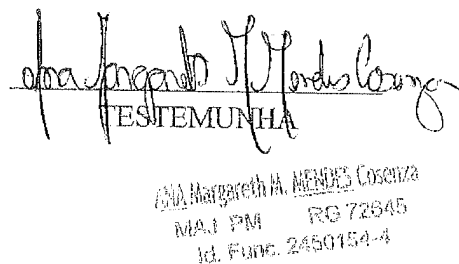 Ana Margareth M Mendes Cosenza
TESTEMUNHA
ANA Margareth M. MENDES Cosenza
MAJ PM RG 72645
Id. Func. 2450154-4